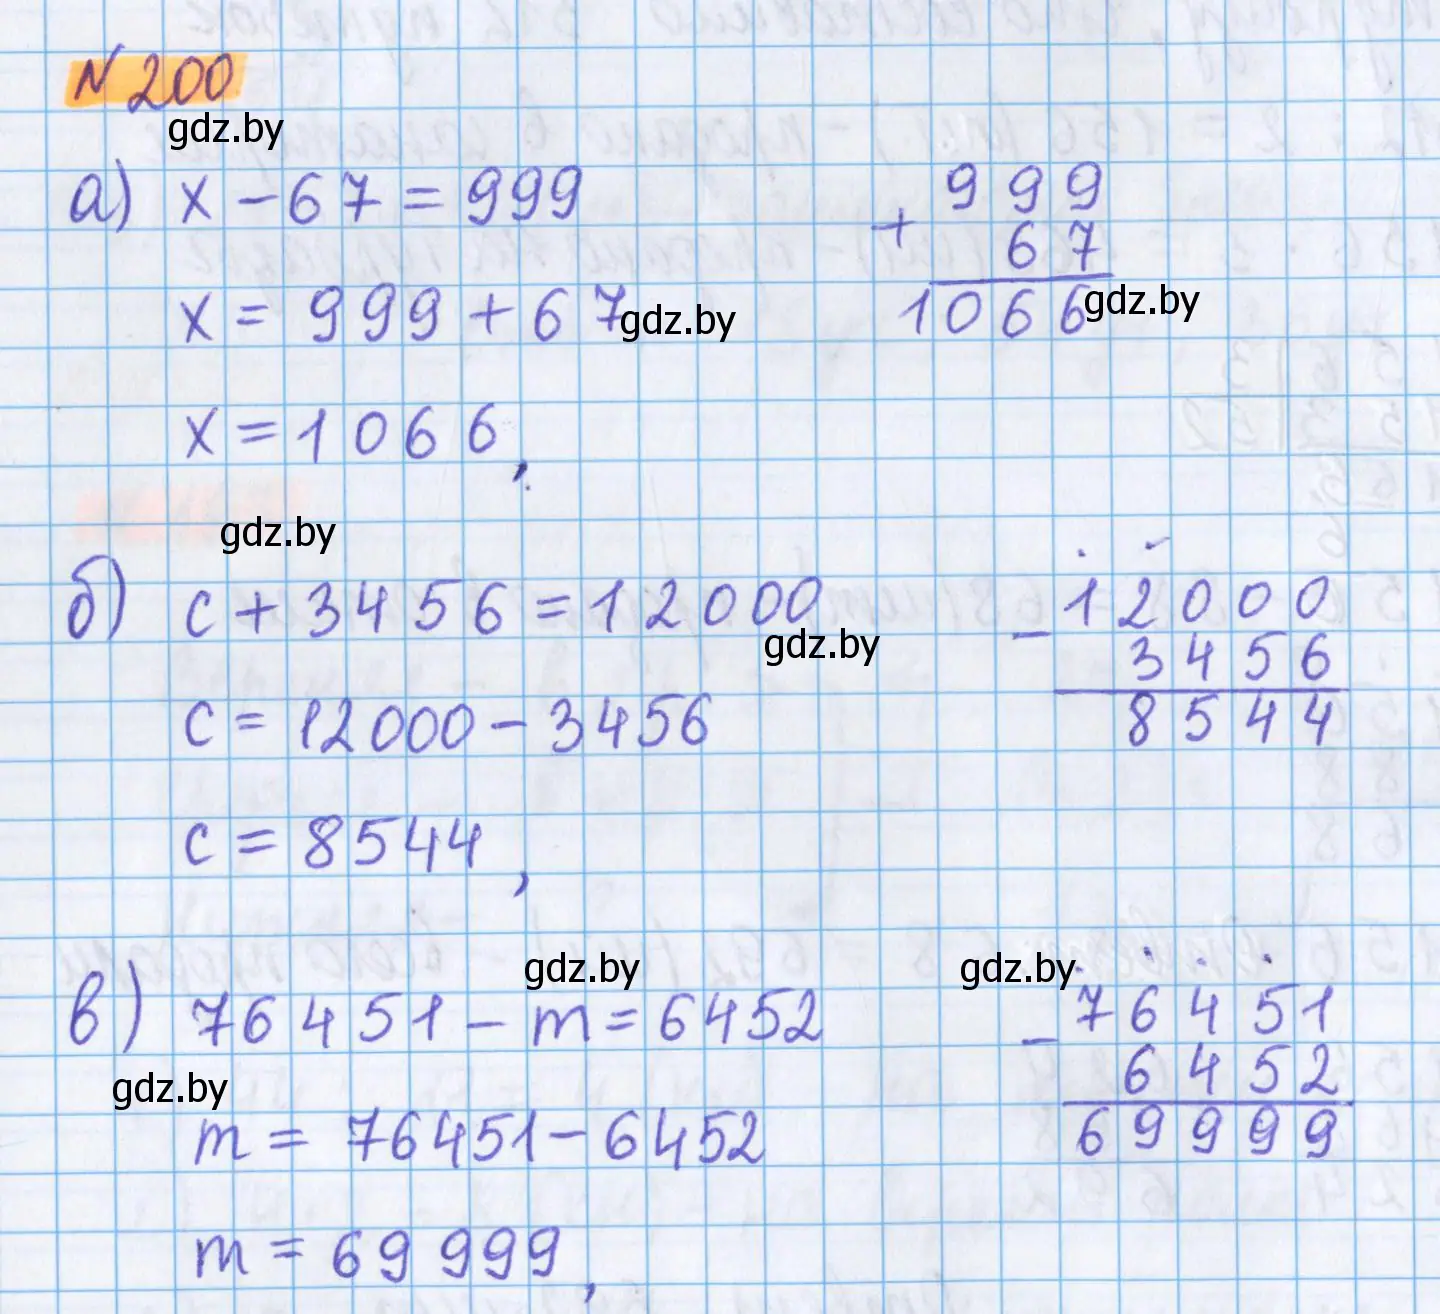 № 200
gdz.by
а) x - 67 = 999
x = 999 + 67
gdz.by
x = 1066,
+ 999
67
1066
gdz.by
gdz.by
б) c + 3456 = 12000
gdz.by
c = 12000 - 3456
c = 8544,
- 12000
3456
8544
gdz.by
gdz.by
в) 76451 - m = 6452
gdz.by
m = 76451 - 6452
m = 69 999,
- 76451
6452
69999